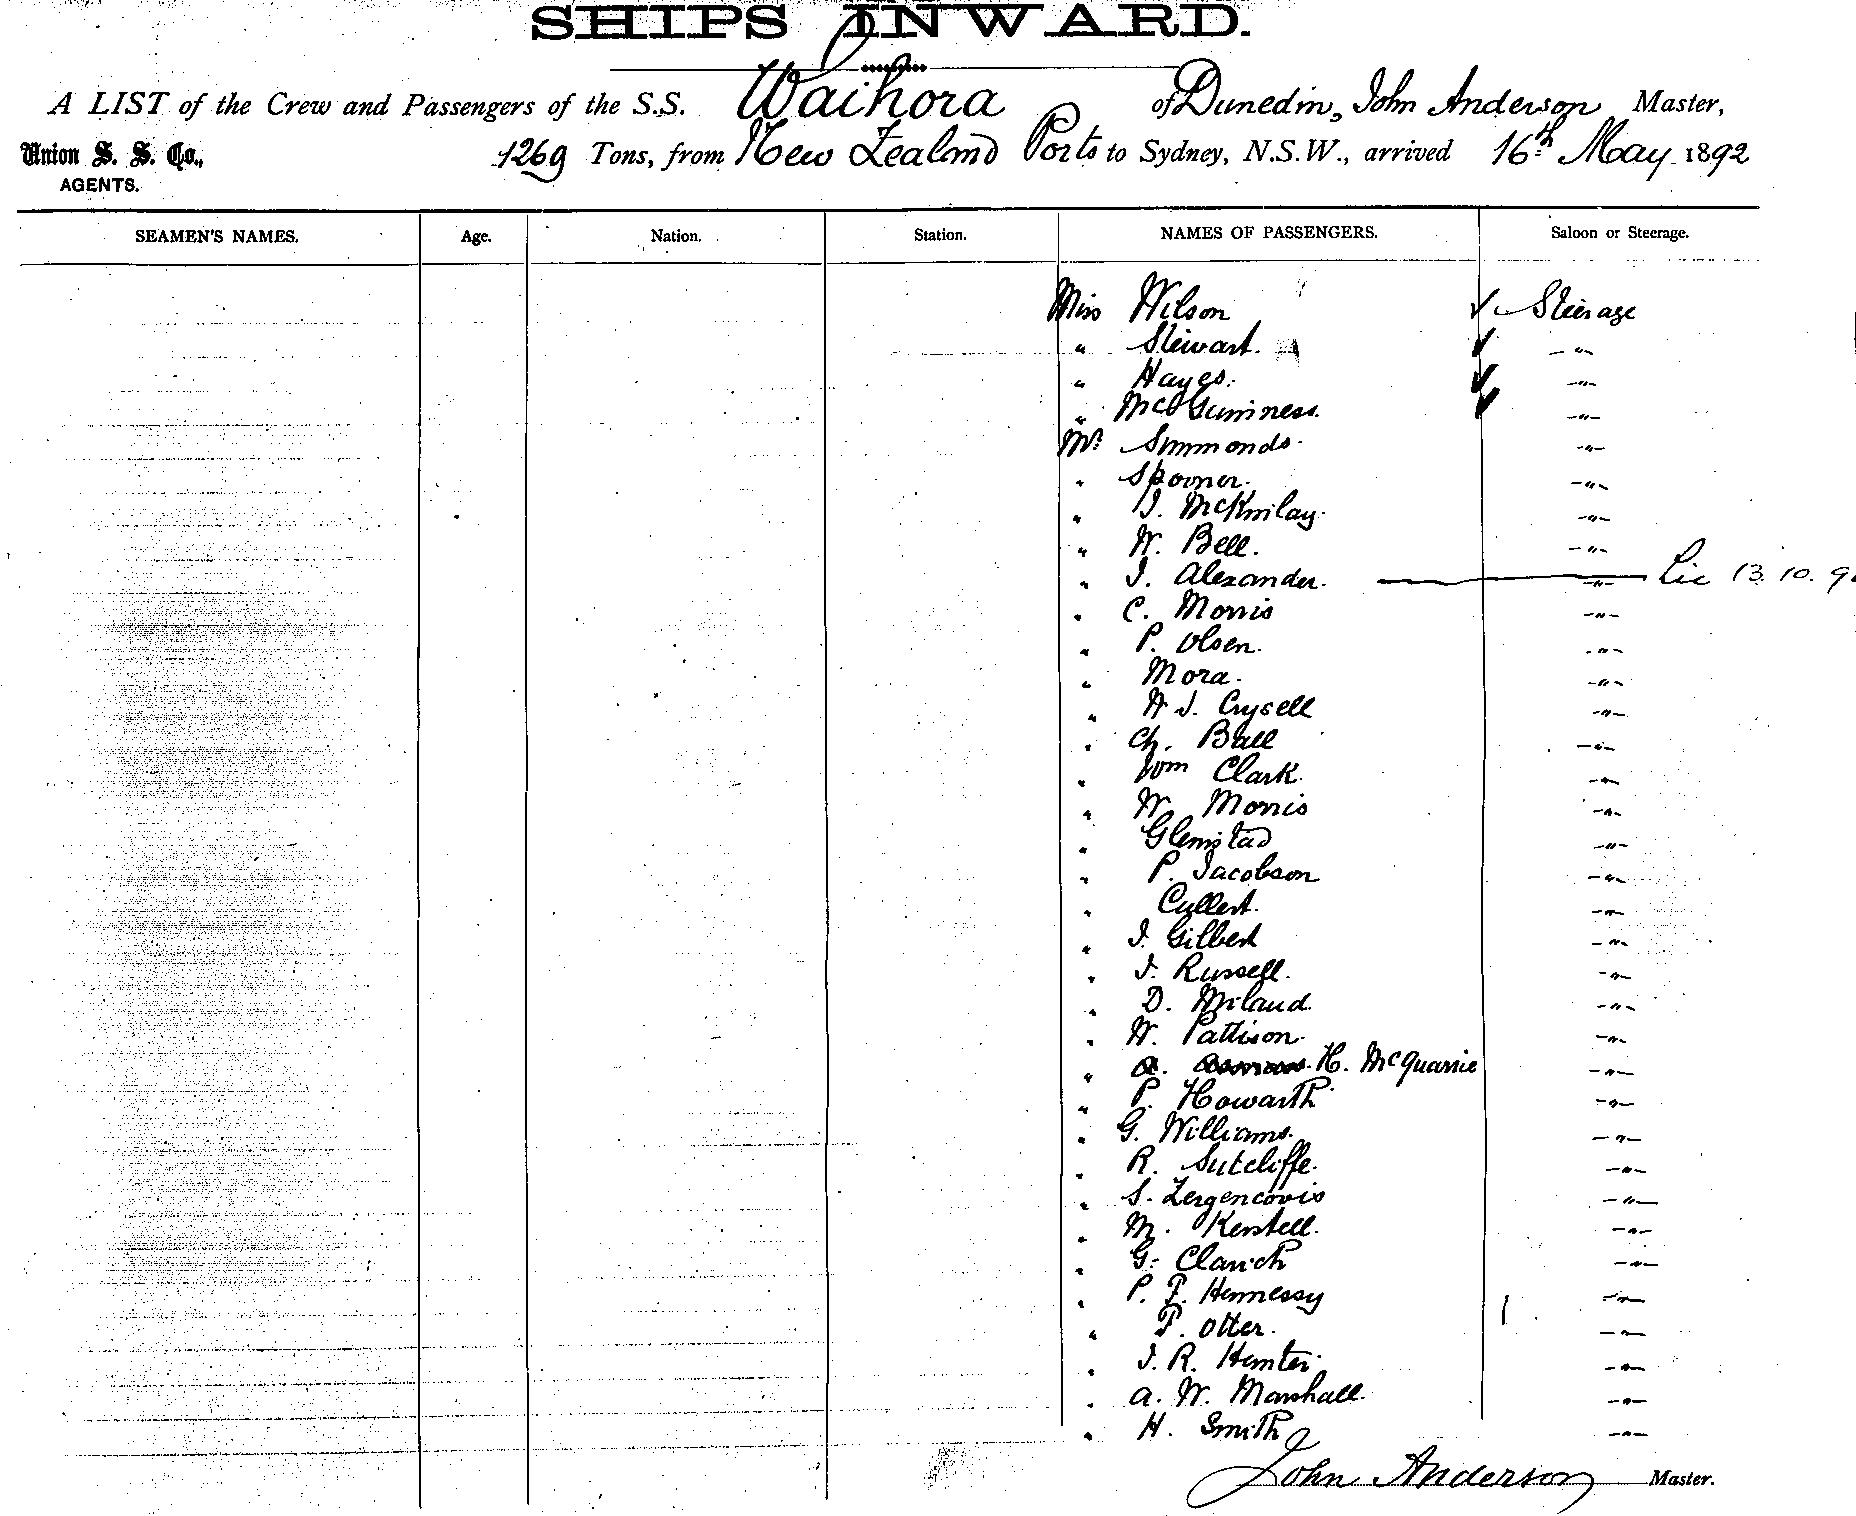 SHIPS INWARD.
A LIST of the Crew and Passengers of the S.S. Waihora of Dunedin, John Anderson Master,
Union S. S. Co., 1269 Tons, from New Zealand Ports to Sydney, N.S.W., arrived 16th May 1892
AGENTS.
SEAMEN'S NAMES. Age. Nation. Station. NAMES OF PASSENGERS. Saloon or Steerage.
Miss Wilson ✓ Steerage
" Stewart. ✓ -"-
" Hayes. ✓ -"-
" McGuinness. ✓ -"-
Mr Simmonds. -"-
" Spooner. -"-
" J. McKinlay. -"-
" W. Bell. -"-
" J. Alexander. — -"- — Lic 13.10.
" C. Morris -"-
" P. Olsen. -"-
" Mora. -"-
" W J. Crysell -"-
" Ch. Ball -"-
" Wm Clark. -"-
" W. Morris -"-
Glenistad -"-
" P. Jacobson -"-
" Cullert. -"-
" J. Gilbert -"-
" J. Russell. -"-
" D. Milaud. -"-
" W. Pattison. -"-
" A. H. McQuarrie -"-
" P. Howarth -"-
" G. Williams. -"-
" R. Sutcliffe. -"-
" S. Zergencovis -"-
" M. Kerstell. -"-
" G. Clarich -"-
" P. F. Hennessy -"-
" F. Otter. -"-
" J. R. Hunter. -"-
" A. W. Marshall. -"-
" H. Smith -"-
John Anderson Master.